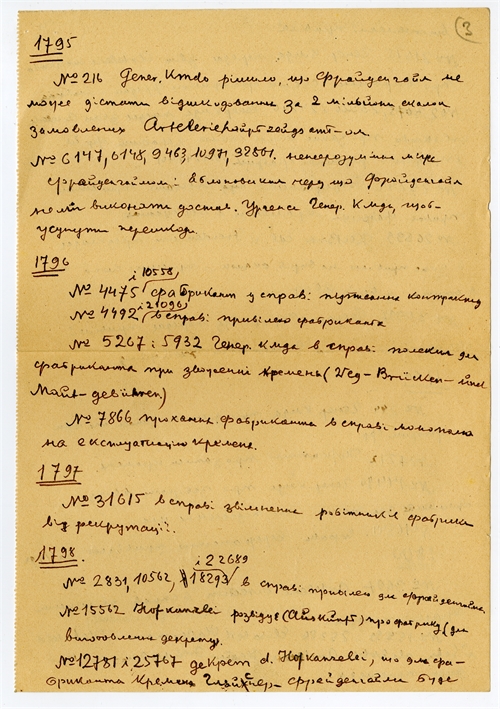 3
1795
№ 216 Генер. Kmdo рішило, що Фрайденгайм не
може дістати відшкодовання за 2 мільйони скалок
замовлених Artilleriehauptzeigdamt-ом.
№ 6147, 6148, 9463, 10971, 32861. непорозуміння між
Фрайденгаймом і Яблоновским через що Фрайденгайм
не міг виконати достав. Ургенс Генер. Кмда, щоб
усунути перешкоди.
1796
і 10558,
№ 4475 фабрикант у справі підписання контракту
і 21096,
№ 4492 в справі привілею фабриканта
№ 5267 і 5932 Генер. Кмда в справі полекш для
фабриканта при зведенні кременя (Weg- Brücken- und
Maut-gebühren)
№ 7866 прохання фабриканта в справі монополю
на експлуатацію кременя.
1797
№ 31615 в справі звільнення робітників фабрики
від рекрутації.
1798.
і 22689
№ 2831, 10562, 18293 в справі привілею для Фрайденгайма.
№ 15562 Hofkanzlei розвідує (Auskunft) про фабрику (для
виготовлення декрету.
№ 12781 і 25767 декрет d. Hofkanzlei, що для фа-
бриканта кременя Фрайденгайма буде